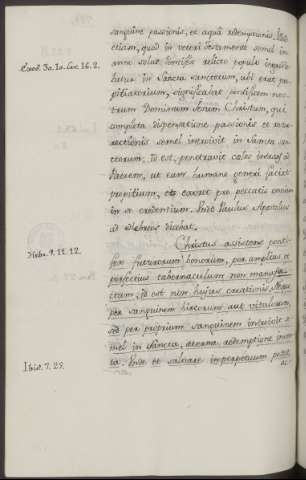 sanguine passionis, et aqua redemptionis. Nec
etiam, quod in veteri testamento semel in
Exod. 30. 10. Lev. 16. 2. anno solus Pontifex relicto populo ingredie
batur in Sancta sanctorum, ubi erat pro
pitiatorium, significabat pontificem nos
trum Dominum Iesum Christum, qui
completa dispensatione passionis et resu
rectionis semel introivit in Sancta san
ctorum, id est, penetravit caelos accessit ad
Patrem, ut eum humano generi faciat
propitium, et exoret pro peccatis omnium
in se credentium. Unde Paulus Apostolus
ad Hebraeos dicebat.
Hebr. 9. 11. 12. Christus assistens ponti-
fex futurorum bonorum, per amplius et
perfectius tabernaculum non manufa
ctum, id est non hujus creationis, neque
per sanguinem hircorum aut vitulorum,
sed per proprium sanguinem introivit se
mel in Sancta, aeterna redemptione inven
Ibid. 7. 25. ta. Unde et salvare in perpetuum potest
ac